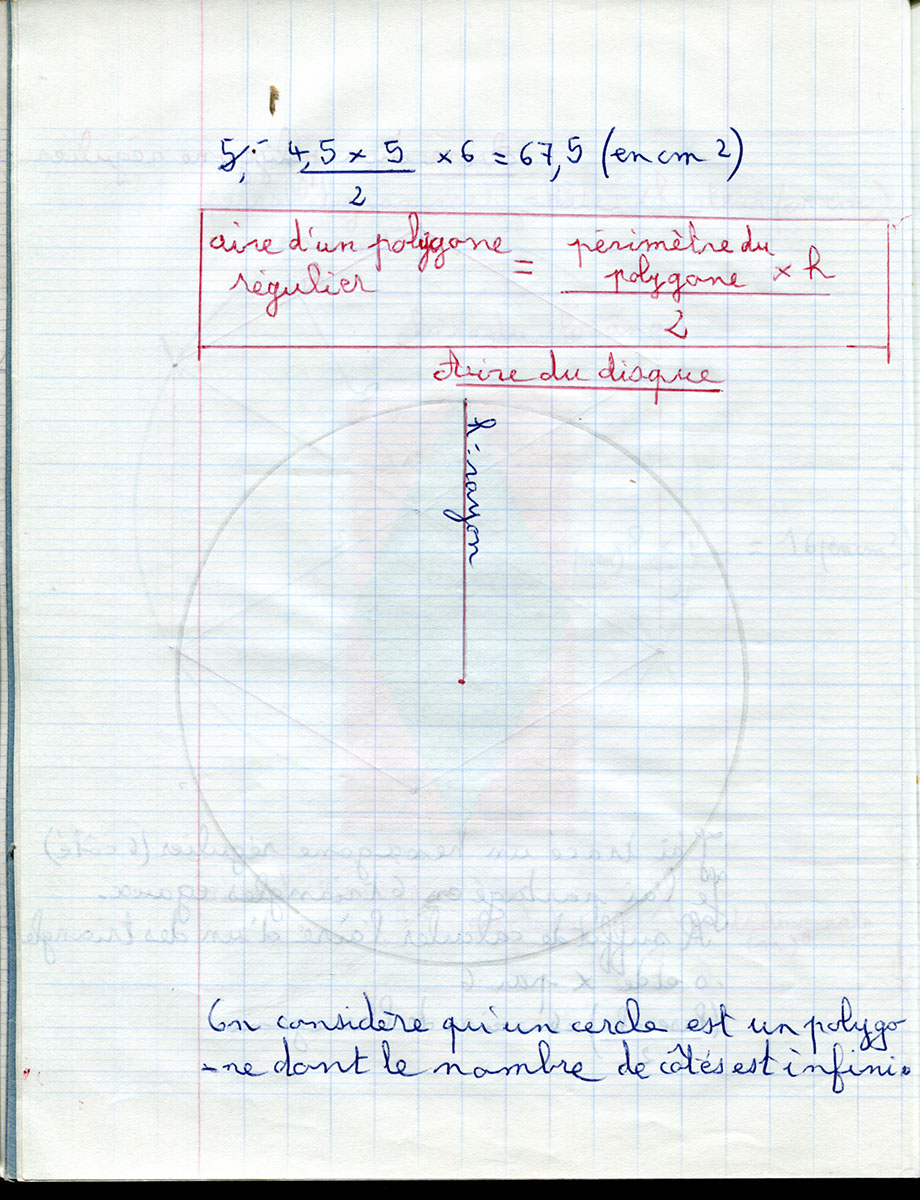 4,5 × 5 × 6 = 67,5 (en cm 2)
2
aire d'un polygone
régulier
=
périmètre du
polygone × h
2
Aire du disque
h = rayon
On considère qu'un cercle est un polygo
-ne dont le nombre de côtés est infini.